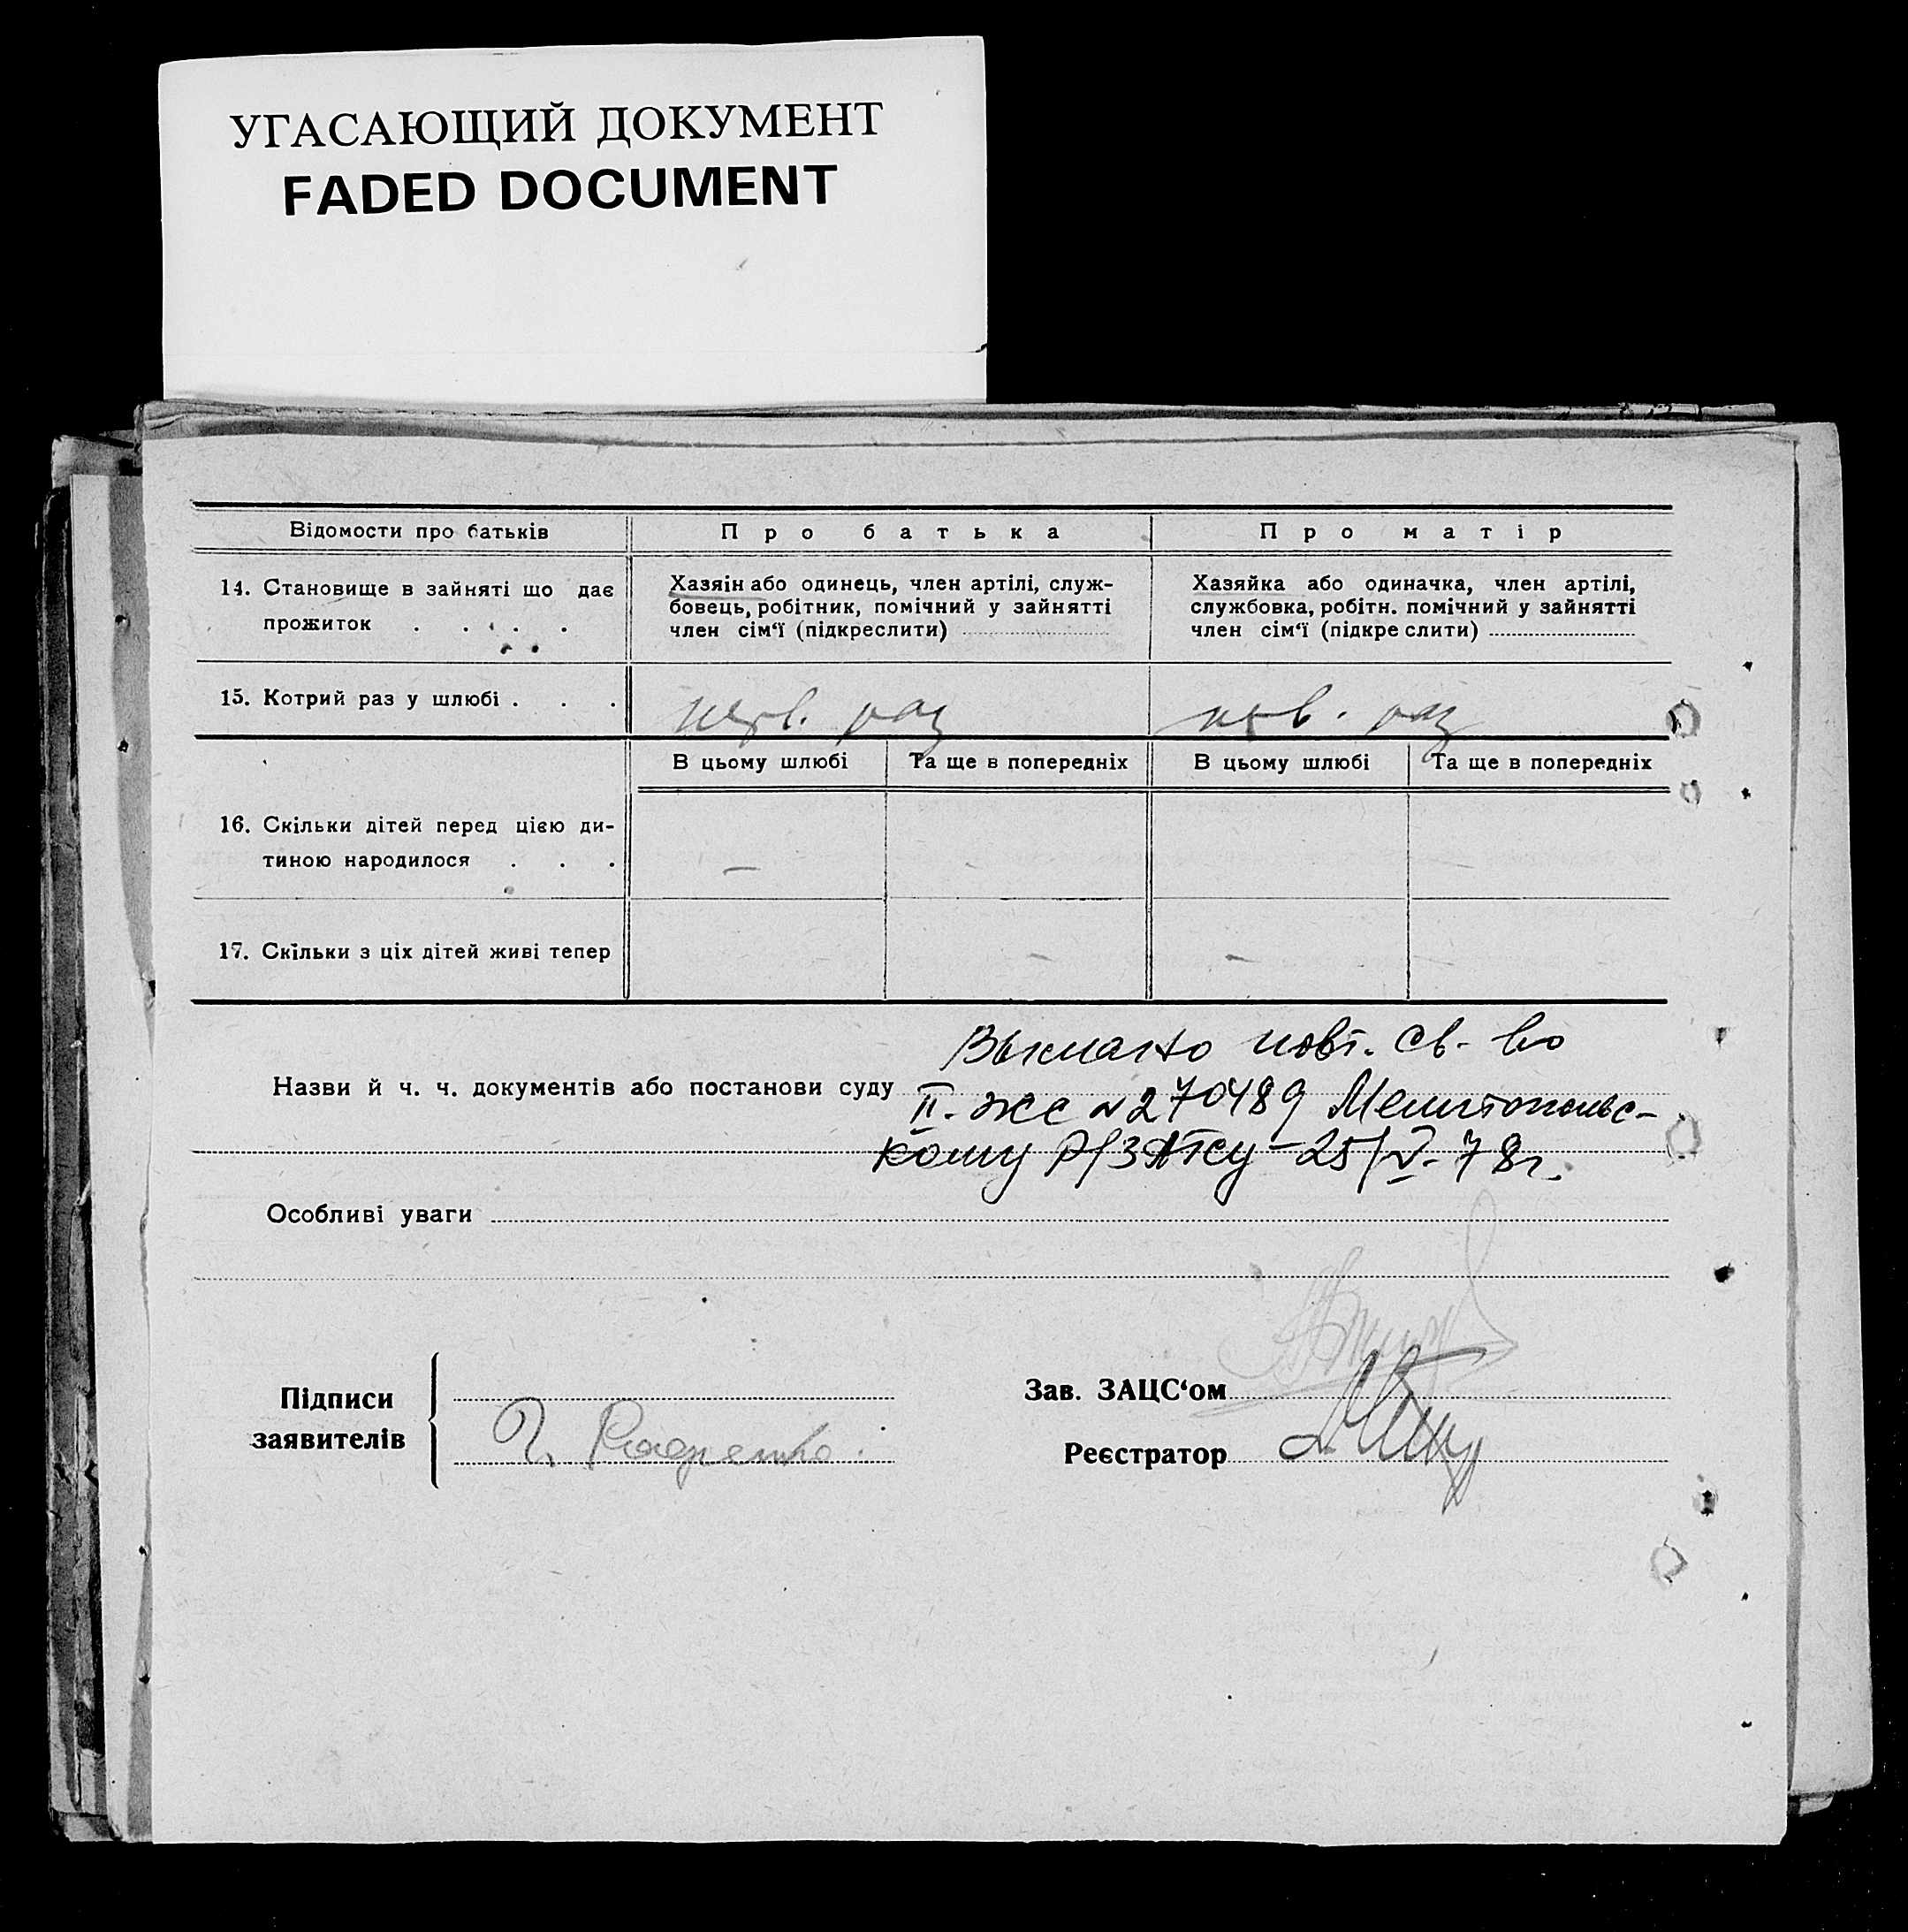 УГАСАЮЩИЙ ДОКУМЕНТ
FADED DOCUMENT
Відомости про батьків
Про батька
Про матір
14. Становище в зайняті що дає
прожиток . . . . .
Хазяін або одинець, член артілі, служ-
бовець, робітник, помічний у зайнятті
член сім‘ї (підкреслити)
Хазяйка або одиначка, член артілі,
службовка, робітн. помічний у зайнятті
член сім‘ї (підкреслити)
15. Котрий раз у шлюбі . . .
перв. раз
перв. раз
В цьому шлюбі
Та ще в попередніх
В цьому шлюбі
Та ще в попередніх
16. Скільки дітей перед цією ди-
тиною народилося . . .
—
-
—
17. Скільки з ціх дітей живі тепер
-
-
повт. св-во
Назви й ч. ч. документів або постанови суду
II-жс № 270489 Мелитопольс-
кому Р/ЗАГСу - 25/V-78г.
Особливі уваги
Підписи
заявителів
Зав. ЗАЦС‘ом
Реєстратор